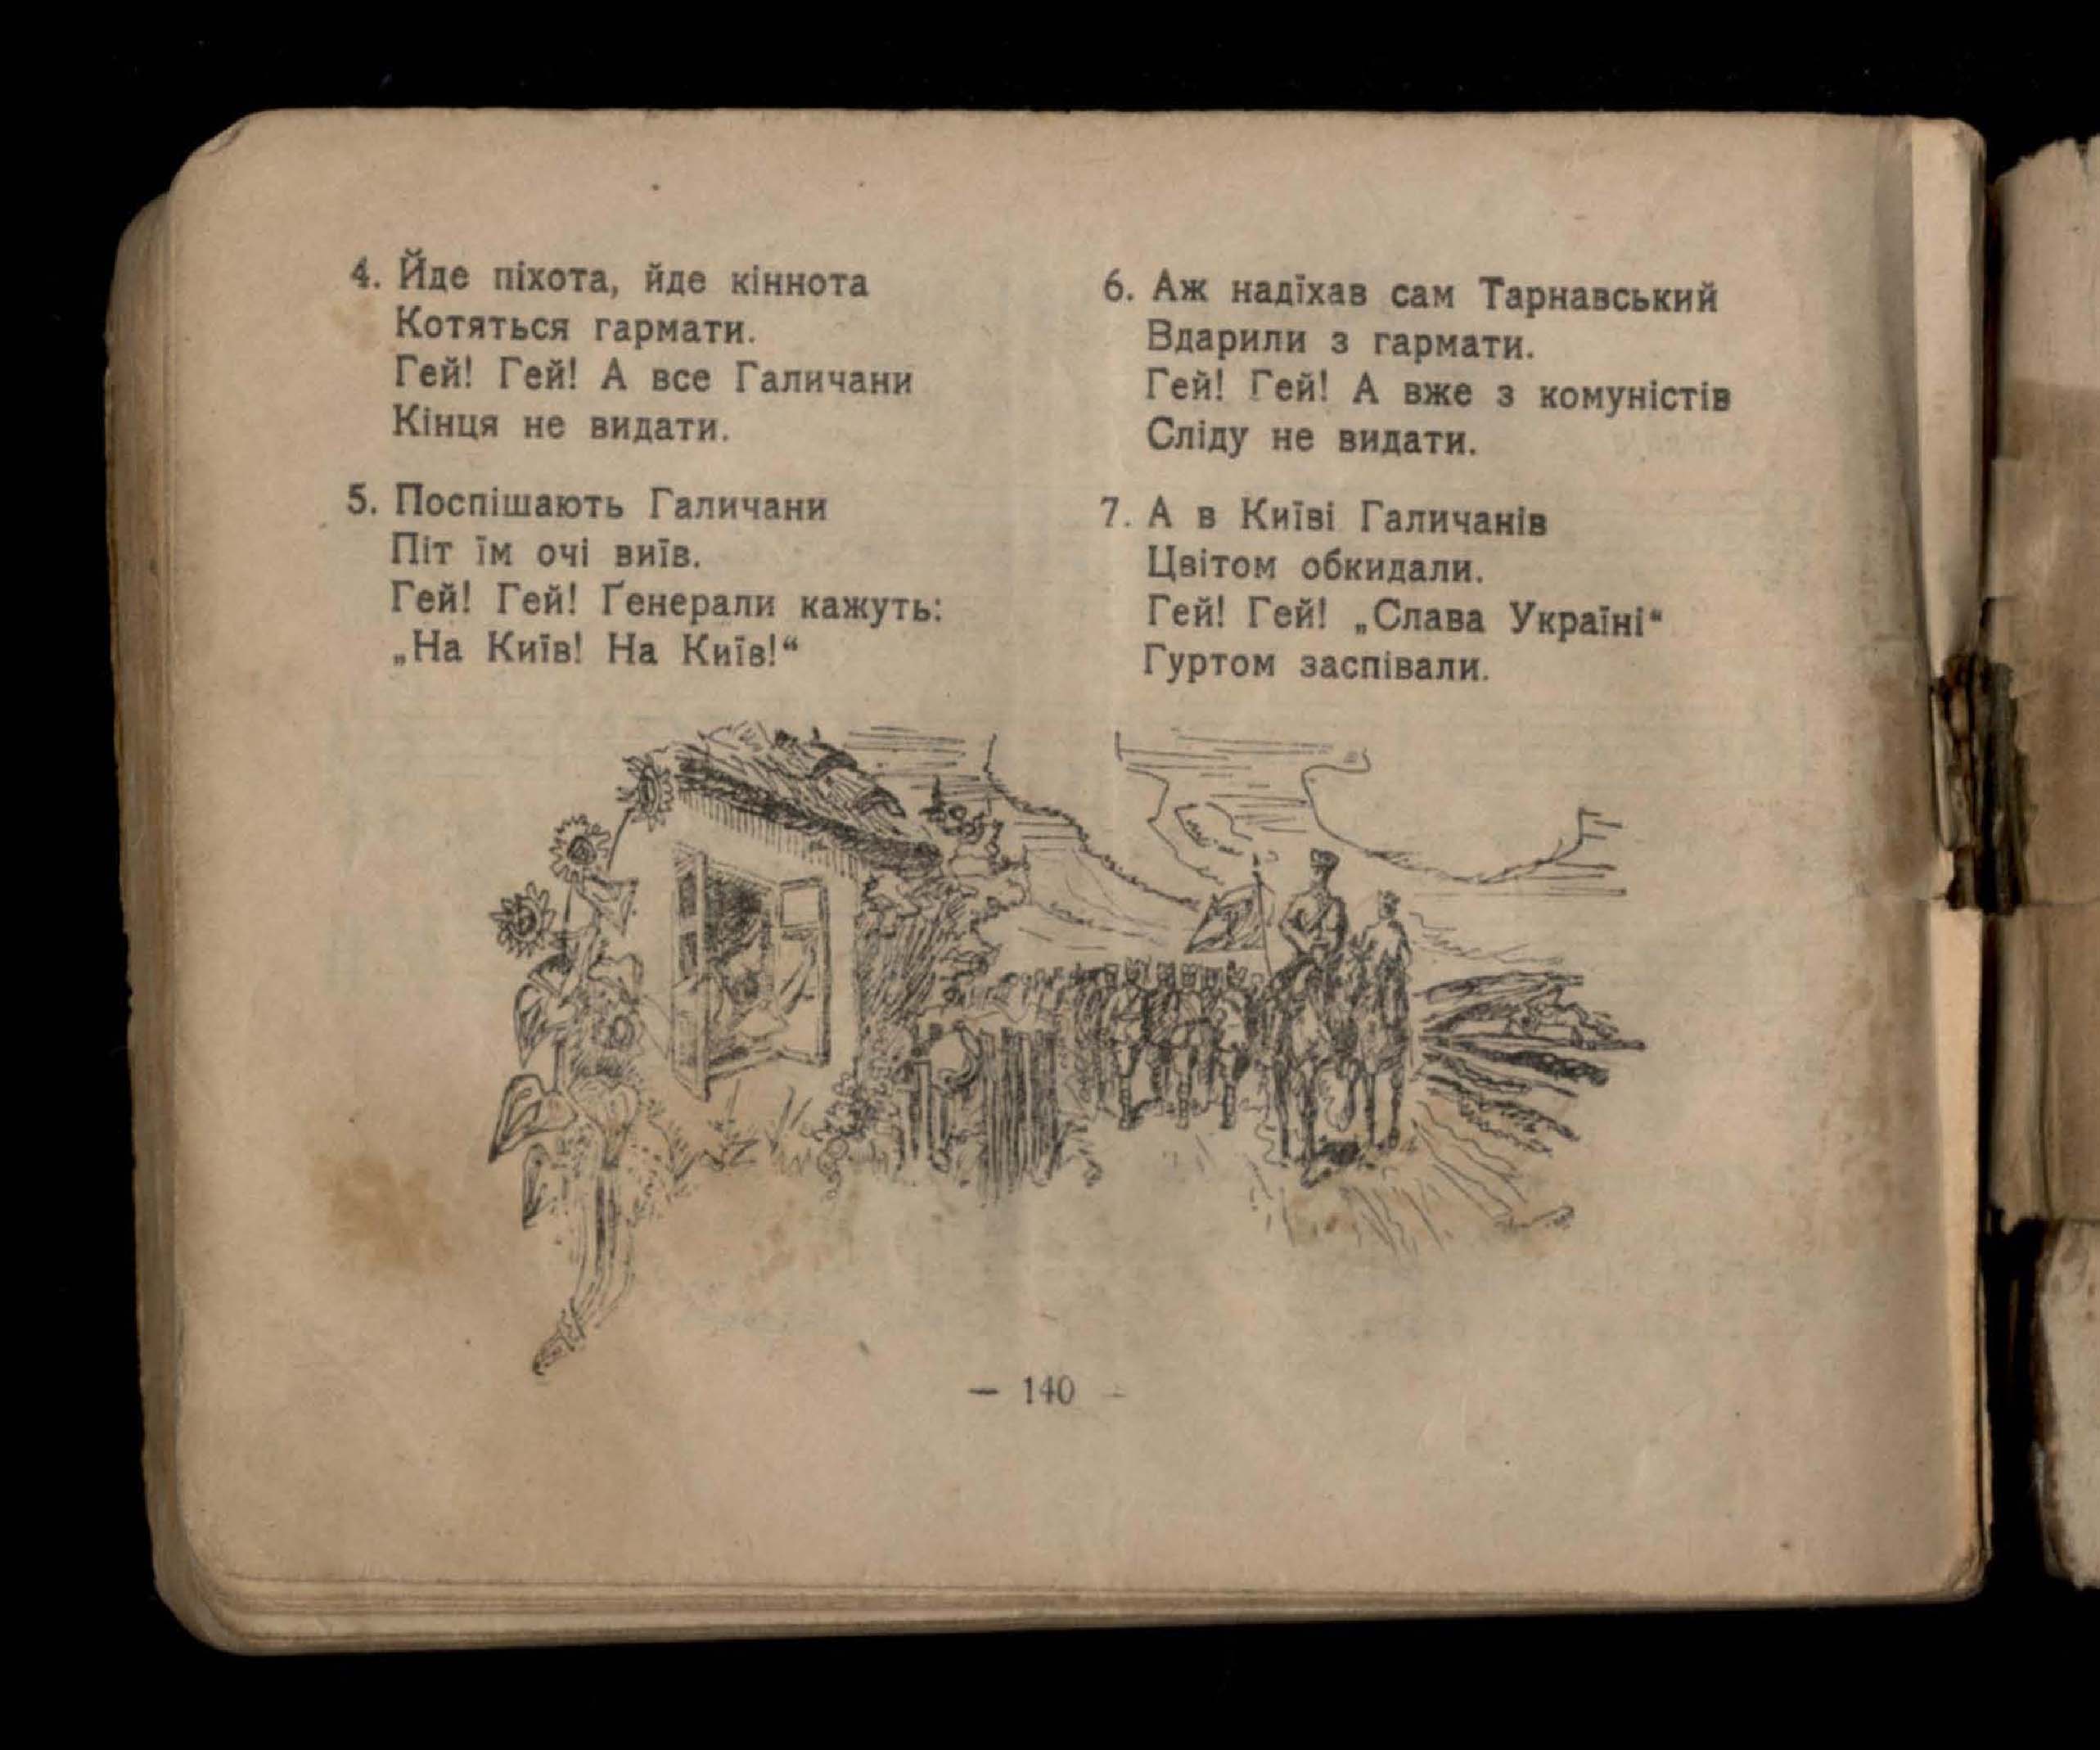 4. Йде піхота, йде кіннота
Котяться гармати.
Гей! Гей! А все Галичани
Кінця не видати.
5. Поспішають Галичани
Піт їм очі виїв.
Гей! Гей! Ґенерали кажуть:
„На Київ! На Київ!“
6. Аж надїхав сам Тарнавський
Вдарили з гармати.
Гей! Гей! А вже з комуністів
Сліду не видати.
7. А в Київі Галичанів
Цвітом обкидали.
Гей! Гей! „Слава Україні“
Гуртом заспівали.
— 140 —